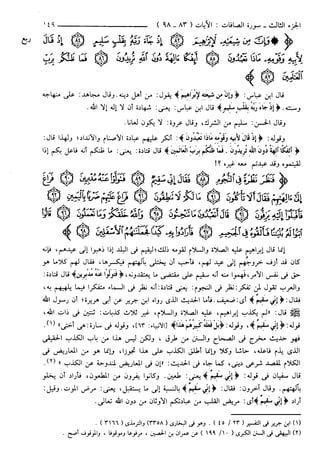 الجزء الثالث - سورة الصافات : الآيات ( ٨٣ - ٩٨ ) ١٤٩
ربع
﴿ وَإِنَّ مِن شِيعَتِهِ لَإِبْرَاهِيمَ إِذْ جَاءَ رَبَّهُ بِقَلْبٍ سَلِيمٍ إِذْ قَالَ
لِأَبِيهِ وَقَوْمِهِ مَاذَا تَعْبُدُونَ أَئِفْكًا آلِهَةً دُونَ اللَّهِ تُرِيدُونَ فَمَا ظَنُّكُم بِرَبِّ
الْعَالَمِينَ ﴾
قال ابن عباس: ﴿ وَإِنَّ مِن شِيعَتِهِ لَإِبْرَاهِيمَ ﴾ يقول: من أهل دينه. وقال مجاهد: على منهاجه
وسنته. ﴿ إِذْ جَاءَ رَبَّهُ بِقَلْبٍ سَلِيمٍ ﴾ قال ابن عباس: يعني: شهادة أن لا إله إلا الله.
وقال الحسن: سليم من الشرك، وقال عروة: لا يكون لعانا.
وقوله: ﴿ إِذْ قَالَ لِأَبِيهِ وَقَوْمِهِ مَاذَا تَعْبُدُونَ ﴾: أنكر عليهم عبادة الأصنام والأنداد، ولهذا قال:
﴿ أَئِفْكًا آلِهَةً دُونَ اللَّهِ تُرِيدُونَ . فَمَا ظَنُّكُم بِرَبِّ الْعَالَمِينَ ﴾ قال قتادة: يعني: ما ظنكم أنه فاعل بكم إذا
لقيتموه وقد عبدتم معه غيره ؟!
﴿ فَنَظَرَ نَظْرَةً فِي النُّجُومِ فَقَالَ إِنِّي سَقِيمٌ فَتَوَلَّوْا عَنْهُ مُدْبِرِينَ فَرَاغَ
إِلَى آلِهَتِهِمْ فَقَالَ أَلَا تَأْكُلُونَ مَا لَكُمْ لَا تَنطِقُونَ فَرَاغَ عَلَيْهِمْ ضَرْبًا بِالْيَمِينِ
فَأَقْبَلُوا إِلَيْهِ يَزِفُّونَ قَالَ أَتَعْبُدُونَ مَا تَنْحِتُونَ وَاللَّهُ خَلَقَكُمْ وَمَا تَعْمَلُونَ
قَالُوا ابْنُوا لَهُ بُنْيَانًا فَأَلْقُوهُ فِي الْجَحِيمِ فَأَرَادُوا بِهِ كَيْدًا فَجَعَلْنَاهُمُ الْأَسْفَلِينَ ﴾
إنما قال إبراهيم عليه الصلاة والسلام لقومه ذلك؛ ليقيم في البلد إذا ذهبوا إلى عيدهم، فإنه
كان قد أزف خروجهم إلى عيد لهم، فأحب أن يختلي بآلهتهم فيكسرها، فقال لهم كلاما هو
حق في نفس الأمر، فهموا منه أنه سقيم على مقتضى ما يعتقدونه، ﴿ فَتَوَلَّوْا عَنْهُ مُدْبِرِينَ ﴾ قال قتادة:
والعرب تقول لمن تفكر: نظر في النجوم: يعني قتادة: أنه نظر في السماء متفكرا فيما يلهيهم به،
فقال: ﴿ إِنِّي سَقِيمٌ ﴾ أي: ضعيف. فأما الحديث الذي رواه ابن جرير عن أبي هريرة؛ أن رسول الله
قال: «لم يكذب إبراهيم، عليه الصلاة والسلام، غير ثلاث كذبات: ثنتين في ذات الله،
قوله: ﴿ إِنِّي سَقِيمٌ ﴾، وقوله: ﴿ بَلْ فَعَلَهُ كَبِيرُهُمْ هَذَا ﴾ [الأنبياء: ٦٣]، وقوله في سارة: هي أختي» (١)
فهو حديث مخرج في الصحاح والسنن من طرق، ولكن ليس هذا من باب الكذب الحقيقي
الذي يذم فاعله، حاشا وكلا وإنما أطلق الكذب على هذا تجوزا، وإنما هو من المعاريض في
الكلام لمقصد شرعي ديني، كما جاء في الحديث: «إن في المعاريض لمندوحة عن الكذب» (٢).
قال سفيان في قوله: ﴿ إِنِّي سَقِيمٌ ﴾ يعني: طعين. وكانوا يفرون من المطعون، فأراد أن يخلو
بآلهتهم. وقال آخرون: فقال: ﴿ إِنِّي سَقِيمٌ ﴾ بالنسبة إلى ما يستقبل، يعني: مرض الموت. وقيل:
أراد ﴿ إِنِّي سَقِيمٌ ﴾ أي: مريض القلب من عبادتكم الأوثان من دون الله تعالى.
(١) ابن جرير في التفسير ( ٢٣ / ٤٥ ) . وهو في البخاري ( ٣٣٥٨ ) والترمذي ( ٣١٦٦ ) .
(٢) البيهقي في السنن الكبرى ( ١٠ / ١٩٩ ) عن عمران بن الحصين ، مرفوعا وموقوفا ، والموقوف أصح .